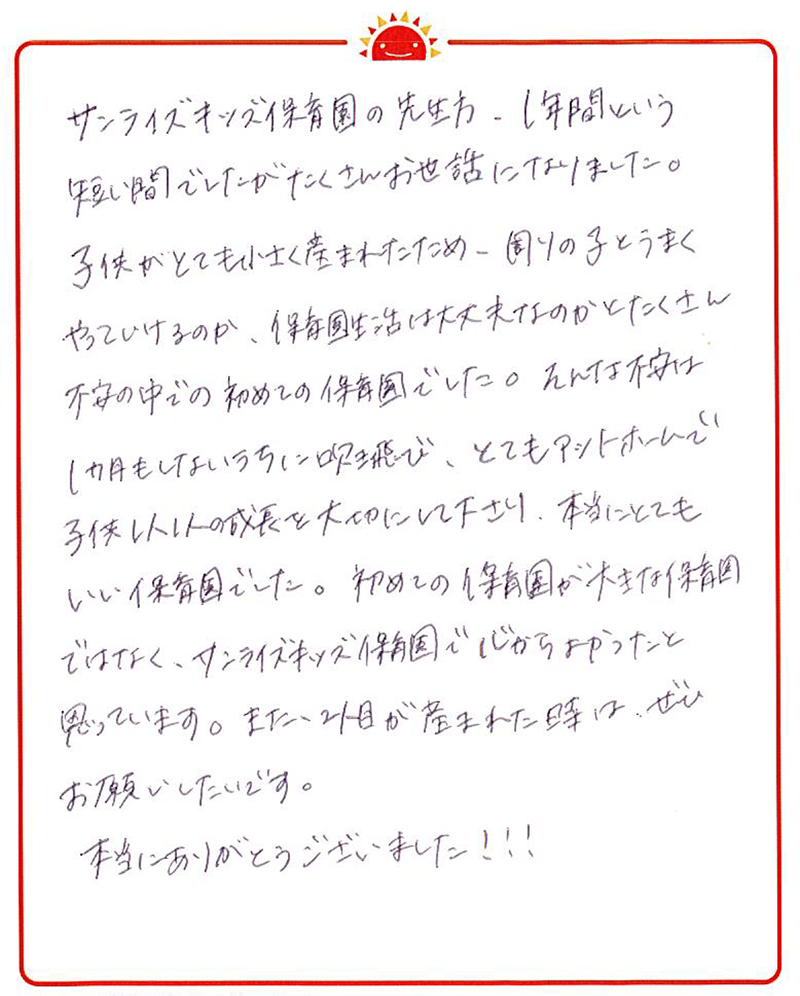 サンライズキッズ保育園の先生方、1年間という
短い間でしたがたくさんお世話になりました。
子供がとても小さく産まれたため、周りの子とうまく
やっていけるのか、保育園生活は大丈夫なのかとたくさん
不安の中での初めての保育園でした。そんな不安は
1カ月もしないうちに吹き飛び、とてもアットホームで
子供1人1人の成長を大切にして下さり、本当にとても
いい保育園でした。初めての保育園が大きな保育園
ではなく、サンライズキッズ保育園で心からよかったと
思っています。また、2人目が産まれた時は、ぜひ
お願いしたいです。
本当にありがとうございました!!!